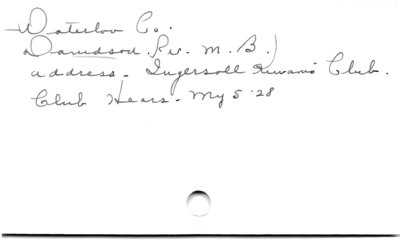 Waterloo Co.
Davidson. Rev. M. B.)
address - Ingersoll Kiwanis Club.
Club Hears - My 5 '28